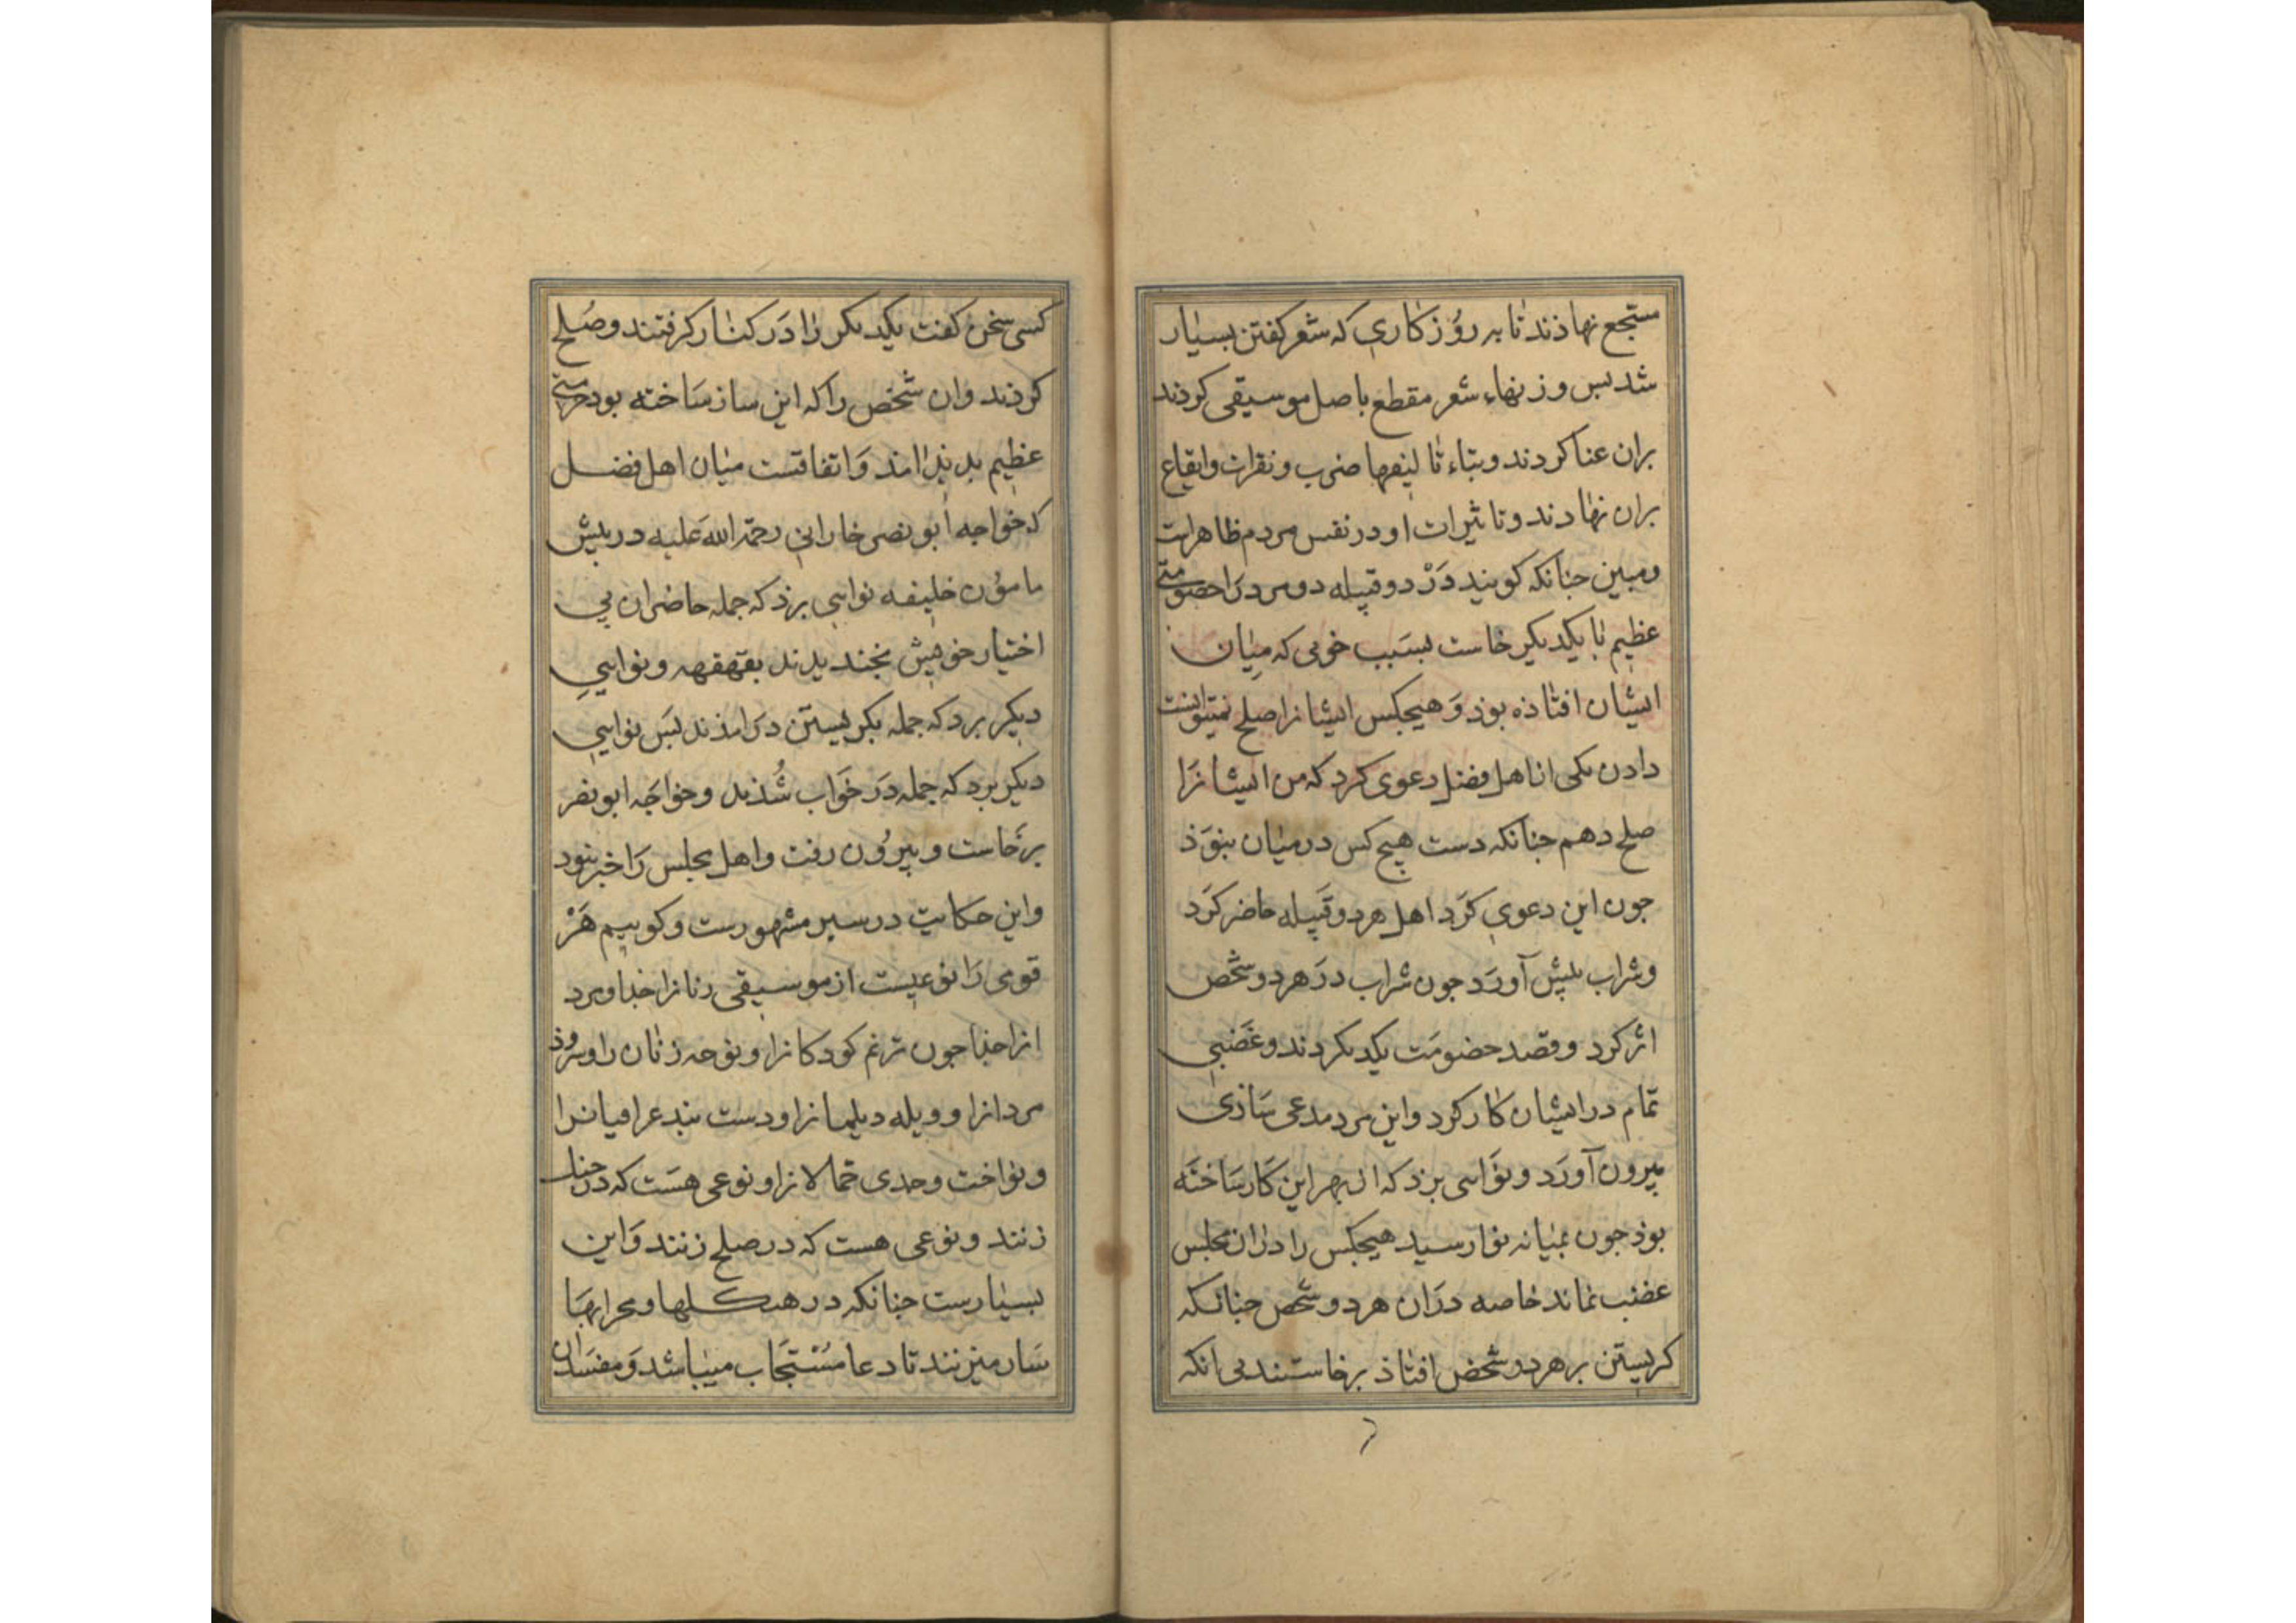 مستجع نهاذند تا به روُزكاری که شعر کفتن بسیار
شد بس وزنهاء شعر مقطع باصل موسیقی کردند
بران غنا کردند و بناء تا لیفها ضرب و نقرات وایقاع
بران نهادند و تاثیرات او در نفس مردم ظاهراست
ومبین جنانکه کویند دَرْ دو قبیله دو مرد رَا خصومتی
عظیم با یکدیکر خاست بسَبب خونی که مِیان
ایشان افتاذه بوذ وَ هیجکس ایشانرا صلح نمیتوانست
دادن یکی از اهل فضل دعوی کرد که من ایشانرَا
صلح دهم جنانکه دست هیج کس درمیان نبوَذ
جون این دعوی کرَد اهل هردو قبیله حاضر کرَد
وشراب پیش آورَد جون شراب درَ هردو شخص
اثر کرد و قصد خصومَت یکدیکر کردند و غَضبی
تمام در ایشان کار کرد واین مرد مدعی سَازی
بیرون آورَد و نوَایی بزد که از بهر این کَار سَاختَه
بوذ جون بمیانه نوا رسید هیجکس را دران مجلس
غضب نماند خاصه درَان هردو شخص جنانکه
کریستن برهردو شخص افتاذ برخاستند بی انکه
کسی سخن کفت یکدیکر را دَر کنار کرفتند و صُلح
کردند وان شخص را که این ساز سَاخته بود حرمتی
عظیم بدیذ امد وَ اتفاقست میان اهل فضل
که خواجه ابو نصر فارابی رحمة الله عَلیه در پیش
مامؤن خلیفه نوایی بزد که جمله حاضران بی
اختیار خویش بخندیدند بقهقهه و نوایی
دیکر برد که جمله بکریستن درَ امذند بسَ نوایی
دیکر برد که جمله دَر خَواب شُدند و خواجَه ابو نصر
برخاست و بیروُن رفت و اهل مجلس رَا خبر نبود
واین حکایت در سیر مشهورست و کوییم هَرْ
قومی رَا نوعیست از موسیقی زنانرا جذا و مرد
انرا جذا جون ترنم کودکانرا و نوحه زنان را و سروذ
مردانرا و ویله دیلمانرا و دست بند عراقیانرا
و نواخت و حدی حمالانرا و نوعی هسَت که در جنک
زنند و نوعی هست که در صلح زنند وَاین
بسیارست جنانکه در هیکلها و محرابهَا
سَاز میزنند تا دعا مسُتجَاب میباشد وَ مفسدان